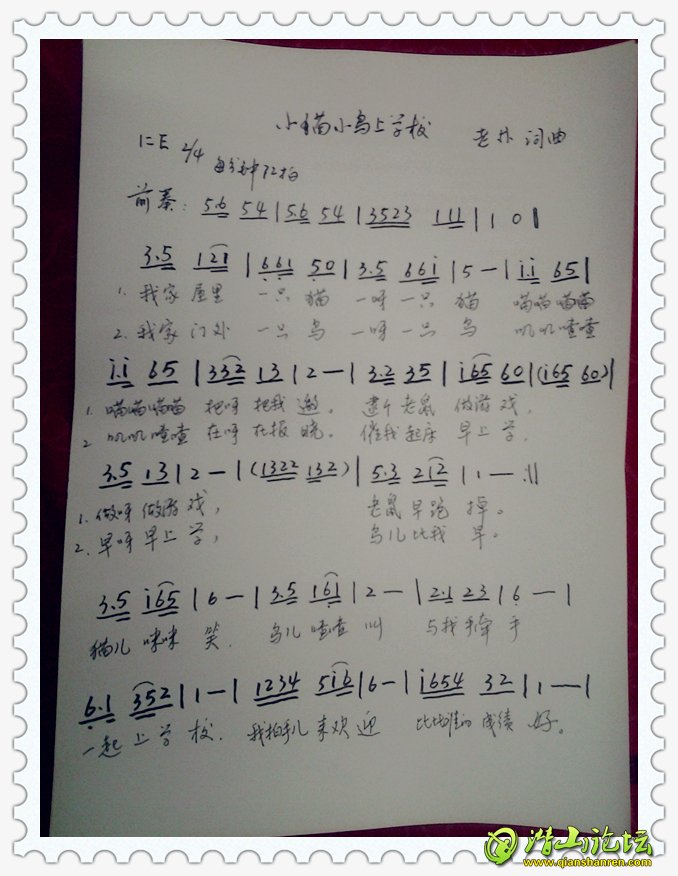 小猫小鸟上学校 老孙 词曲
1=E 2/4 每分钟72拍
前奏: 5.6 54 | 5.6 54 | 3523 111 | 1 0 ‖
3.5 121̇ | 661 50 | 3.5 661̇ | 5 — | 1̇.1̇ 65 |
1. 我家屋里 一只猫 一呀一只猫 喵喵喵喵
2. 我家门外 一只鸟 一呀一只鸟 叽叽喳喳
1̇.1̇ 65 | 332 13 | 2 — | 3.2 35 | 1̇65 60 | (1̇65 60) |
1. 喵喵喵喵 把呀把我邀。 老鼠 做游戏,
2. 叽叽喳喳 在呀在报晓。 催我起床 早上学,
3.5 13 | 2 — | (1322 132) | 5.3 212 | 1 — :‖
1. 做呀做游戏, 老鼠早跑掉。
2. 早呀早上学, 鸟儿比我早。
3.5 1̇65 | 6 — | 3.5 161̇ | 2 — | 2.1 23 | 6 — |
猫儿咪咪笑. 鸟儿喳喳叫 与我手牵手
6.1 352 | 1 — | 1234 51̇6 | 6 — | 1̇654 32 | 1 — |
一起上学校. 我拍手儿来欢迎 比比谁的成绩好。
潜山论坛
www.qianshanren.com